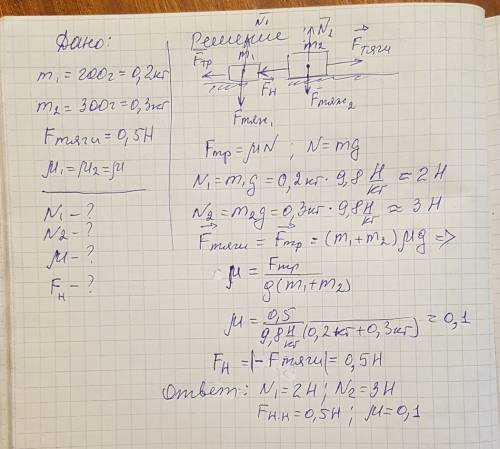 Дано:
m₁ = 200г = 0,2кг
m₂ = 300г = 0,3кг
Fтяги = 0,5Н
μ₁ = μ₂ = μ
N₁ - ?
N₂ - ?
μ - ?
Fн - ?
Решение
N₁
N₂
m₁
m₂
Fтр
Fтяги
Fн
Fтяж₁
Fтяж₂
Fтр = μN ; N = mg
N₁ = m₁g = 0,2кг · 9,8 Н/кг ≈ 2Н
N₂ = m₂g = 0,3кг · 9,8 Н/кг ≈ 3Н
Fтяги = Fтр = (m₁ + m₂) μg =>
μ = Fтр / g(m₁ + m₂)
μ = 0,5 / 9,8 Н/кг (0,2кг + 0,3кг) ≈ 0,1
Fн = |-Fтяги| = 0,5Н
Ответ: N₁ = 2Н ; N₂ = 3Н
Fн.н = 0,5Н ; μ = 0,1